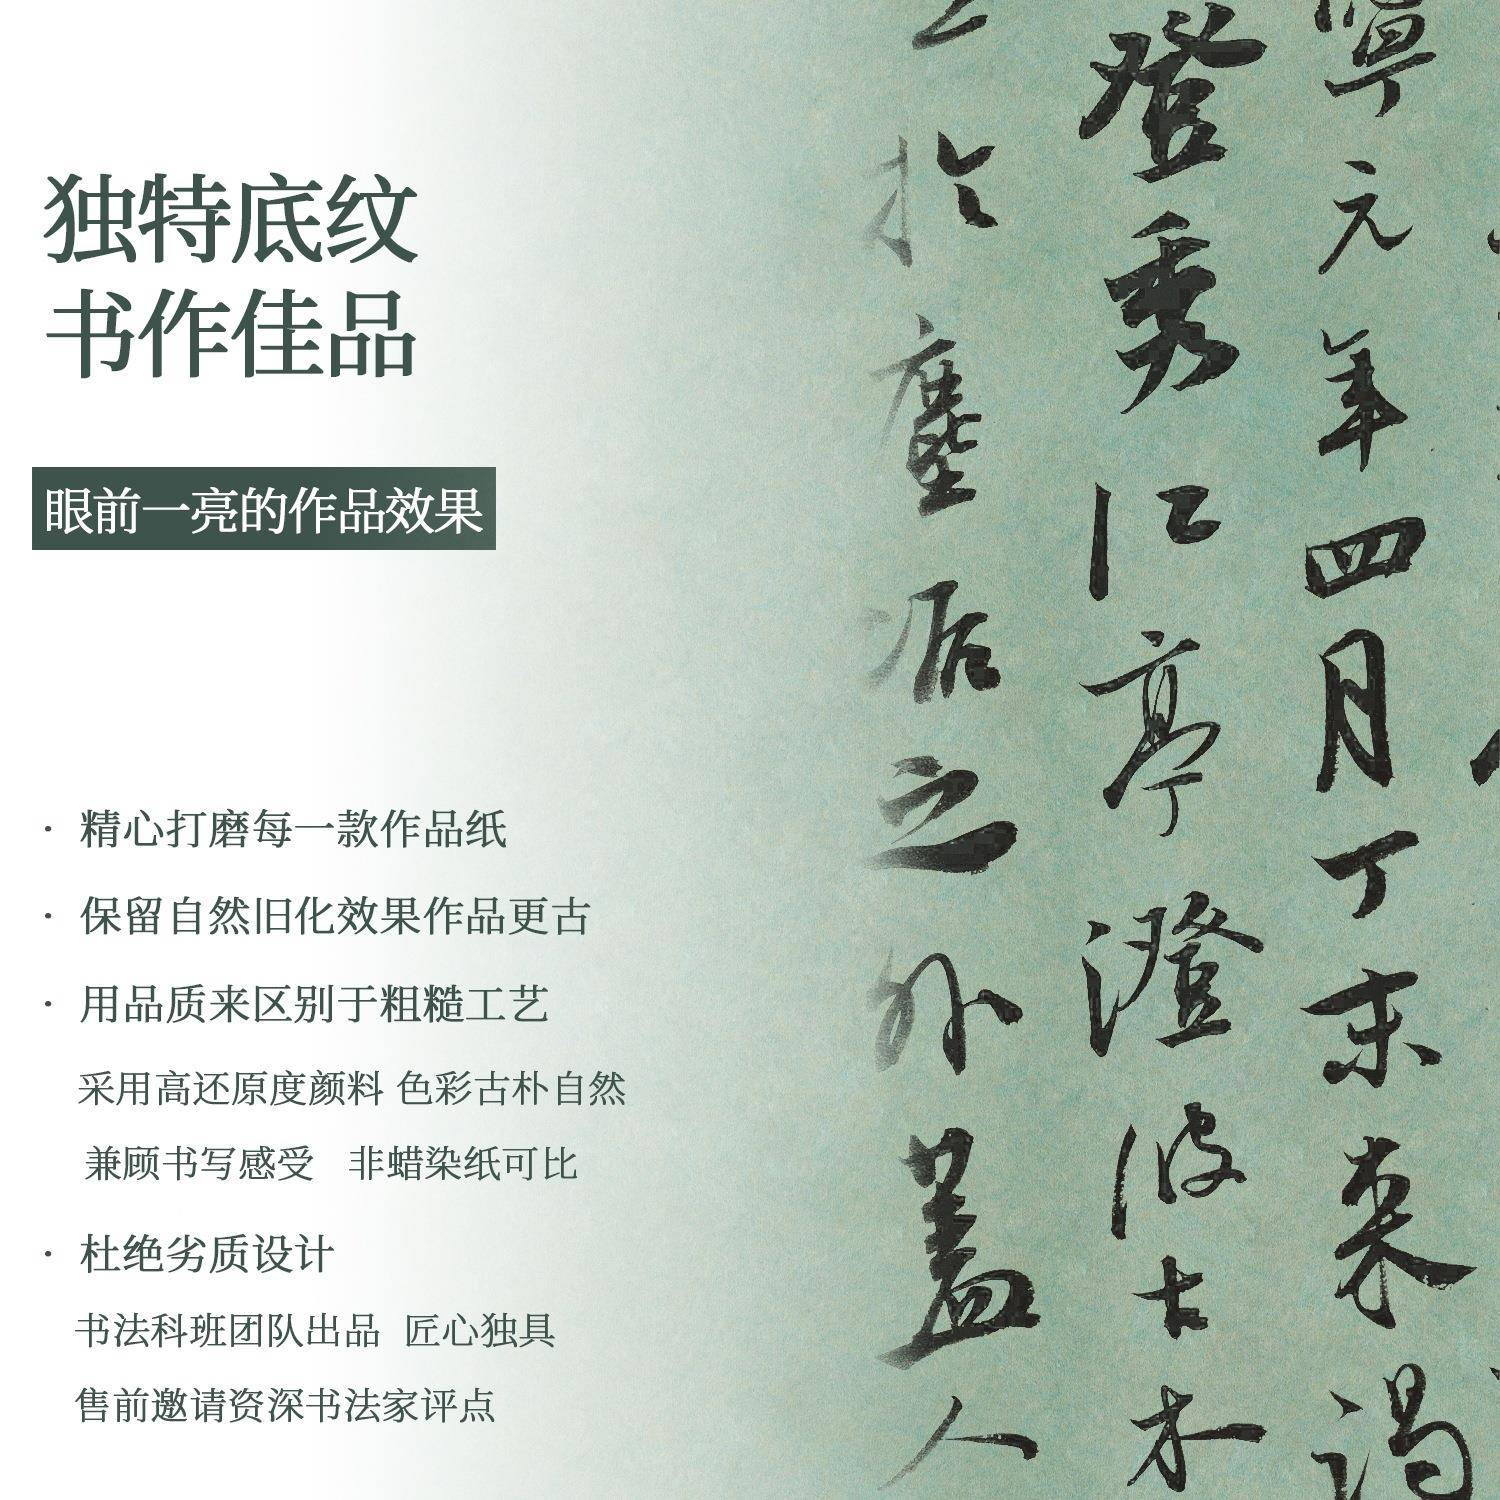 独特底纹
书作佳品
眼前一亮的作品效果
· 精心打磨每一款作品纸
· 保留自然旧化效果作品更古
· 用品质来区别于粗糙工艺
采用高还原度颜料 色彩古朴自然
兼顾书写感受 非蜡染纸可比
· 杜绝劣质设计
书法科班团队出品 匠心独具
售前邀请资深书法家评点
寧元年四月丁未来謁
登秀江亭澄波古木
於塵垢之外蓋人